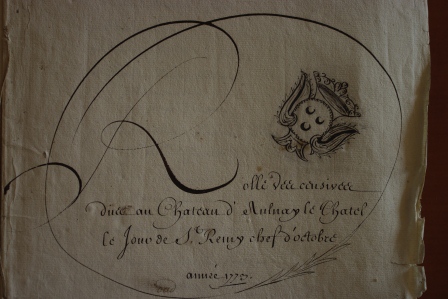 Rolle des censives
dües au Chateau d'Aulnay le Chatel
le Jour de St. Remy chef d'octobre
année 1777.